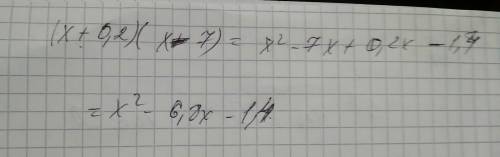 (x + 0,2)(x - 7) = x² - 7x + 0,2x - 1,4
= x² - 6,8x - 1,4